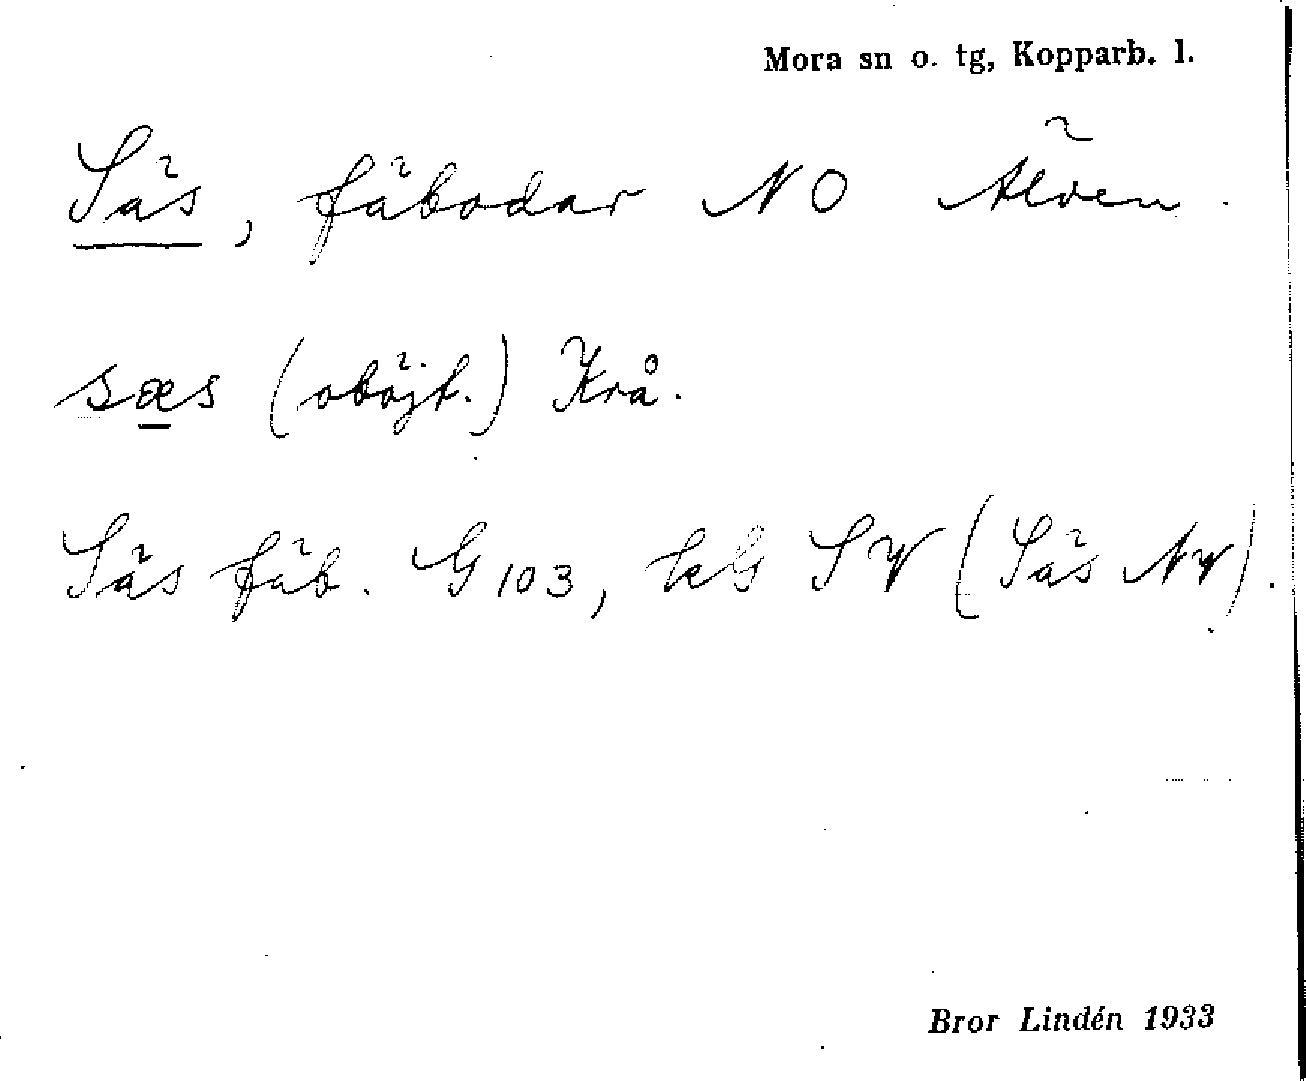 Mora sn o. tg, Kopparb. l.
Säs, fäbodar NO Älven.
sæs (oböjt.) Krå.
Säs fäb. G 103, kbl SV (Säs NV).
Bror Lindén 1933